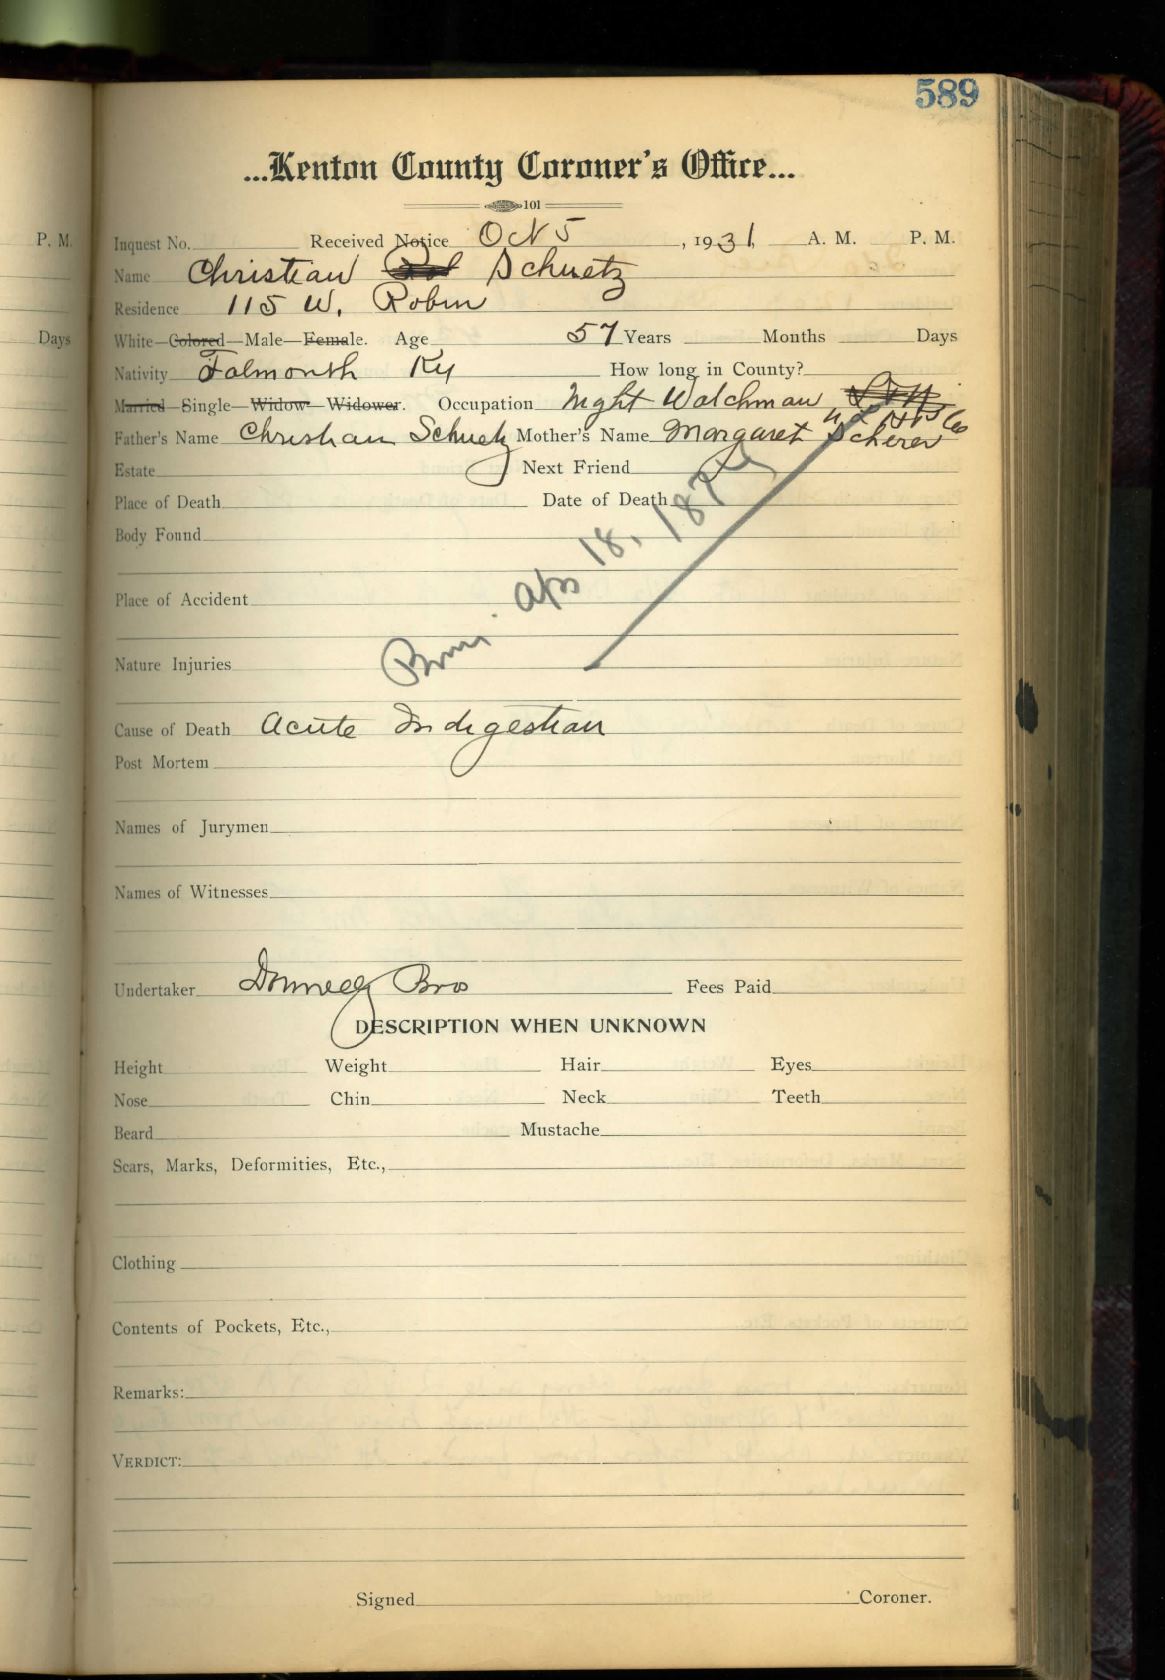 589
...Kenton County Coroner's Office...
101
P. M. Inquest No. Received Notice Oct 5, 1931, A. M. P. M.
Name Christian Schuetz
Residence 115 W. Robin
Days White—Colored—Male—Female. Age 57 Years Months Days
Nativity Falmouth Ky How long in County?
Married—Single—Widow—Widower. Occupation Night Watchman
Father's Name Christian Schuetz Mother's Name Margaret Scherer
Estate Next Friend
Place of Death Date of Death
Body Found
Born. Apr 18, 1874
Place of Accident
Nature Injuries
Cause of Death Acute Indigestion
Post Mortem
Names of Jurymen
Names of Witnesses
Undertaker Donnelly Bros Fees Paid
DESCRIPTION WHEN UNKNOWN
Height Weight Hair Eyes
Nose Chin Neck Teeth
Beard Mustache
Scars, Marks, Deformities, Etc.,
Clothing
Contents of Pockets, Etc.,
Remarks:
VERDICT:
Signed Coroner.